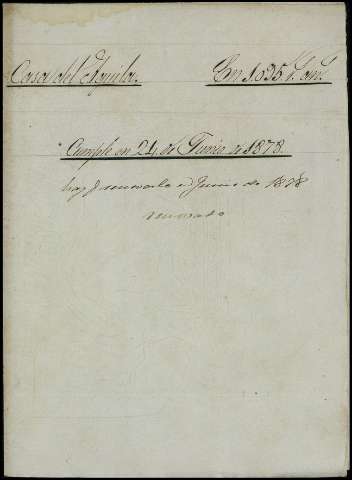 Casa del Aguila. En 1.035 P. an.
Cumple en 24 de Junio de 1878.
hay q renovarla en Junio de 1878
renovado